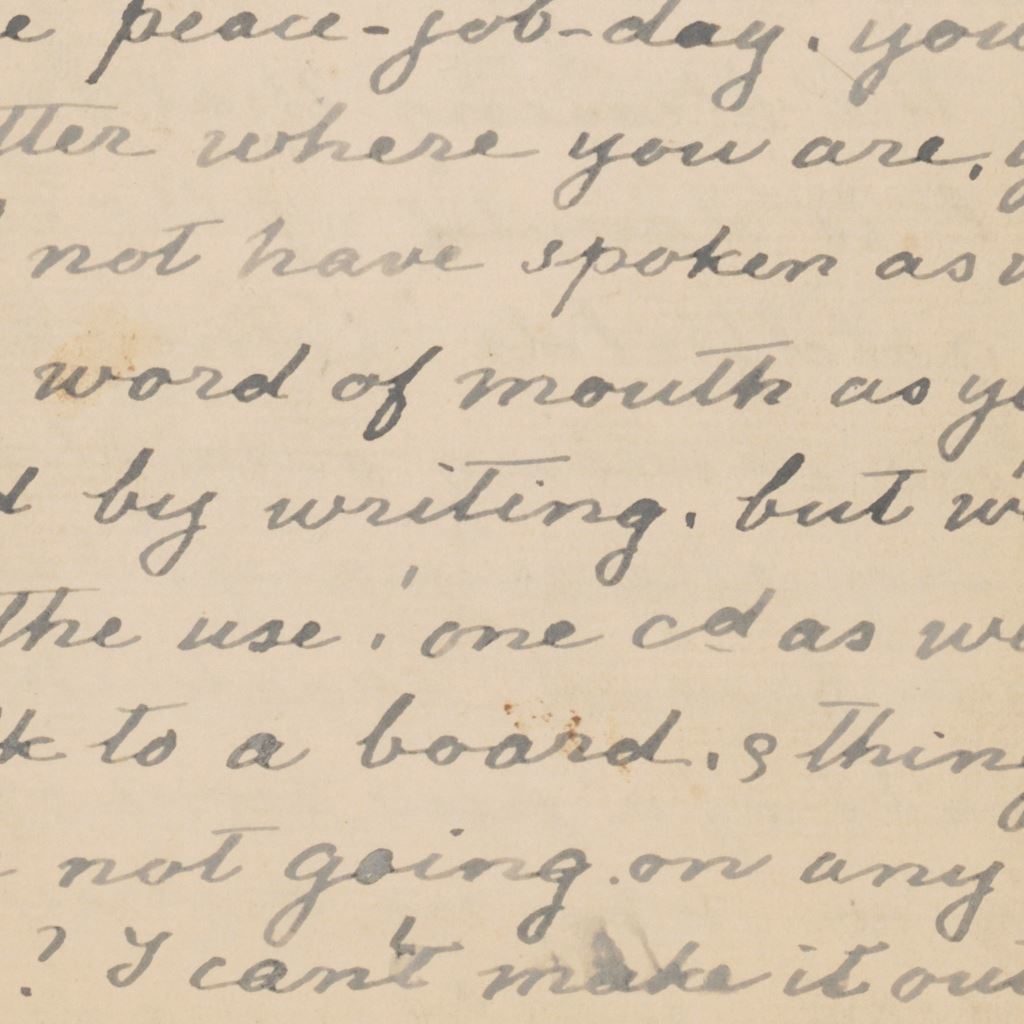 e peace-job-day. you
tter where you are,
not have spoken as
word of mouth as yo
d by writing. but w
the use! one cd as we
lk to a board. & thing
not going on any
? I can't make it out